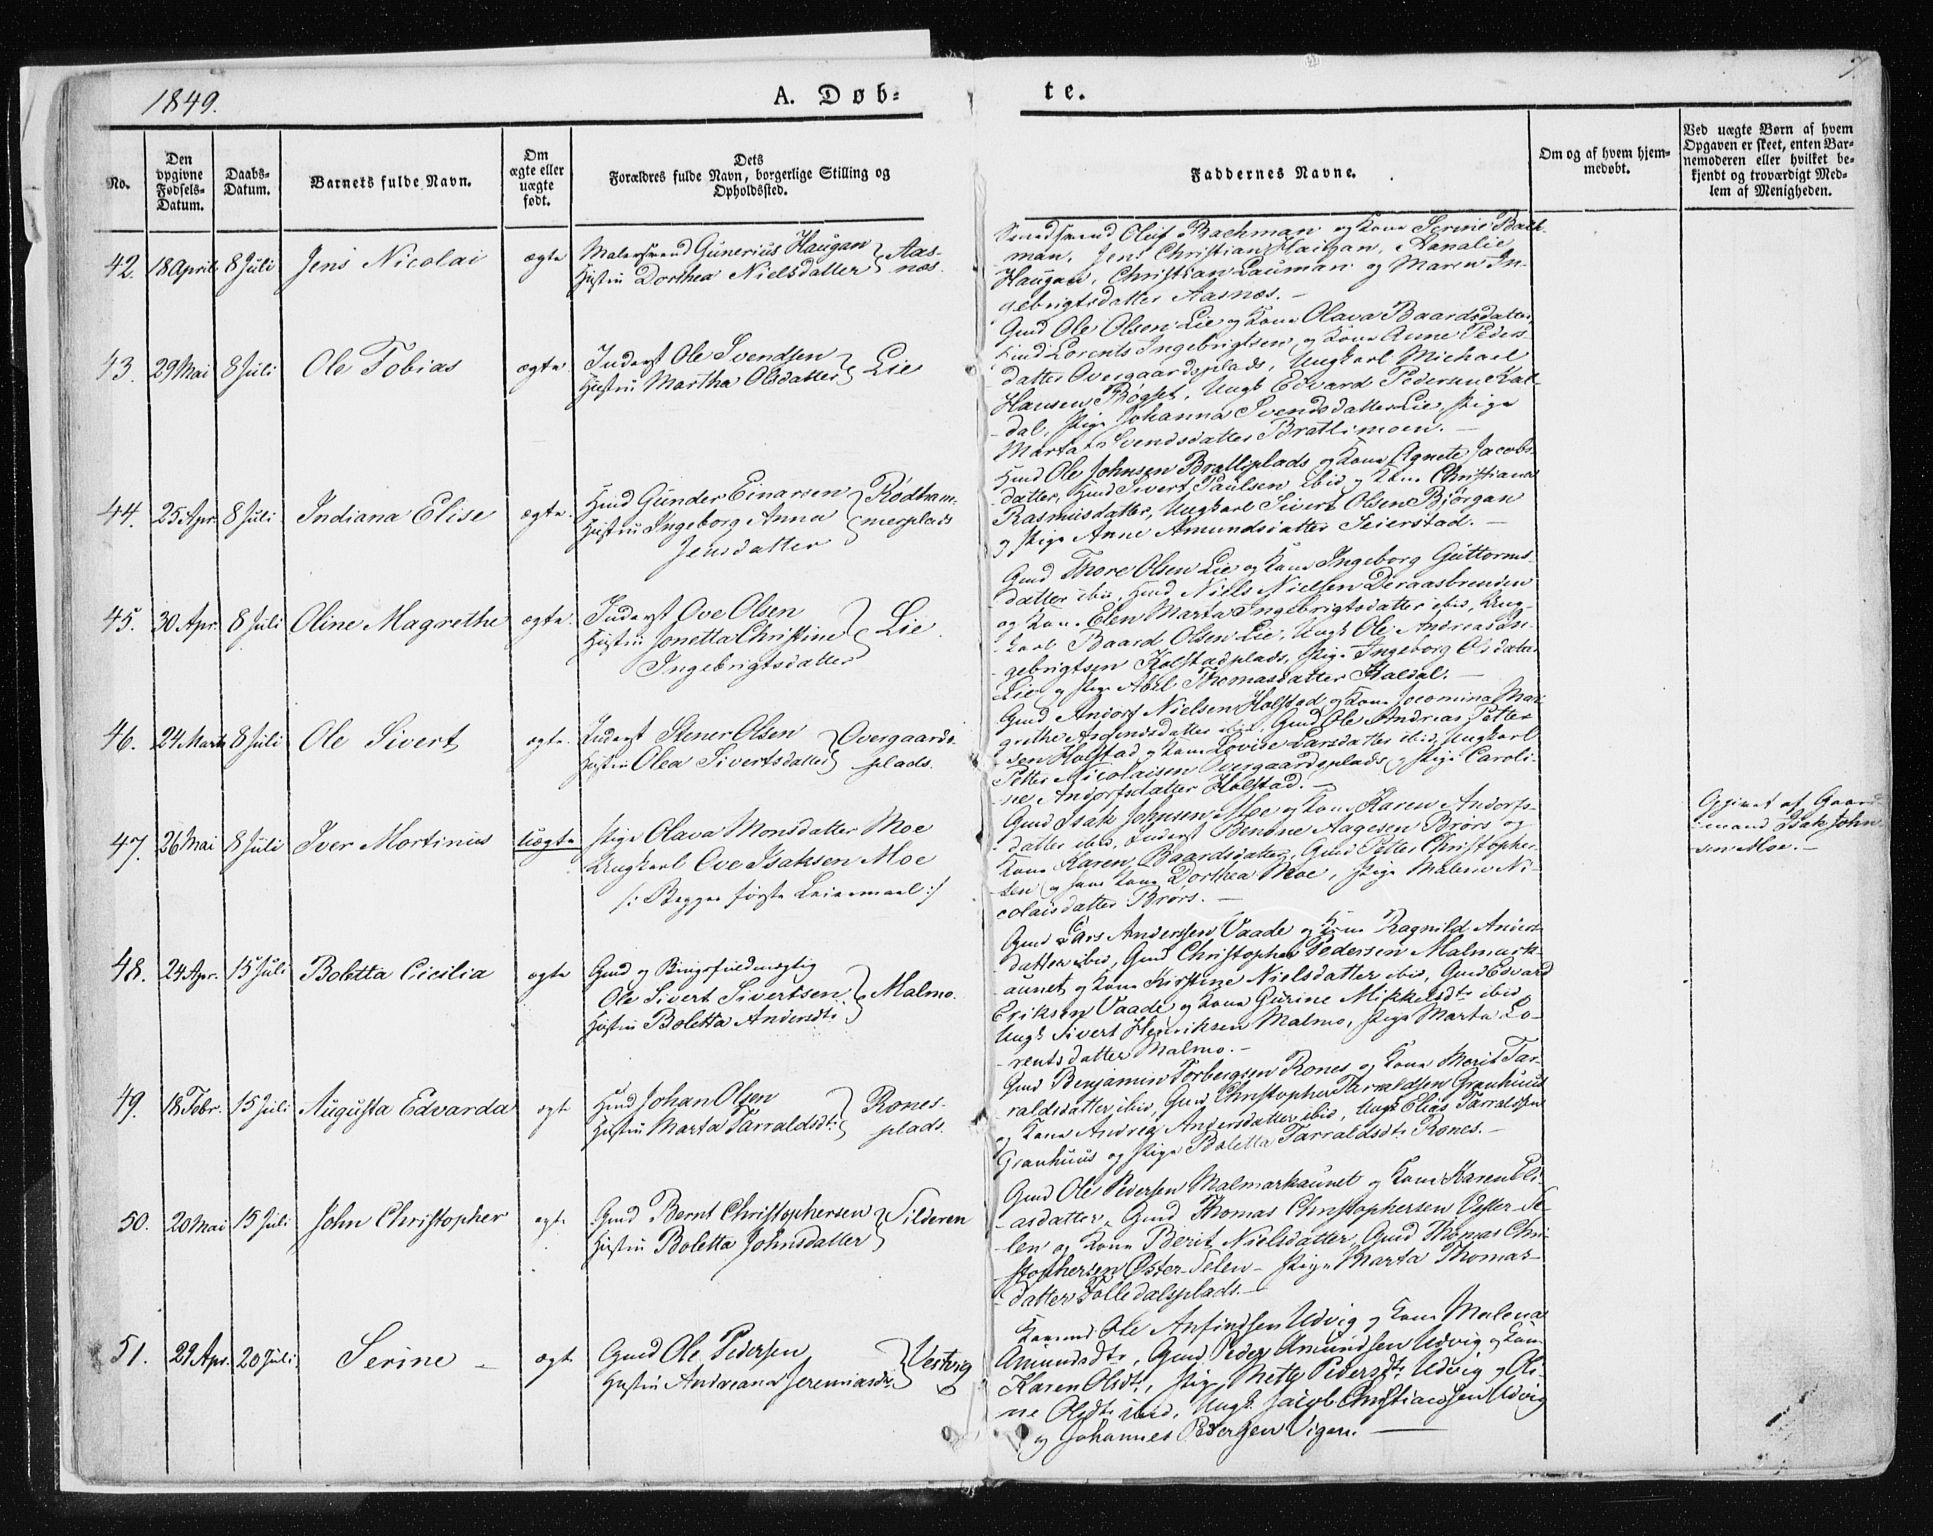 1849.
A. Døb-
te.
7.
No.
Den
opgivne
Fødsels-
Datum.
Daabs-
Datum.
Barnets fulde Navn.
Om
ægte eller
uægte
født.
Dets
Forældres fulde Navn, borgerlige Stilling og
Opholdssted.
Faddernes Navne.
Om og af hvem hjem-
medøbt.
Ved uægte Børn af hvem
Opgaven er skeet, enten Bar-
nemoderen eller hvilket be-
kjendt og troværdigt Med-
lem af Menigheden.
42. 18 April 8 Juli Jens Nicolai ægte
Malersvend Gunerius Haugan
Hustru Dorthea Nielsdatter
Aas-
næs.
Svendsvend Oluf Bachman og Kone Serine Bach-
man, Jens Christian Haugan, Hanalie
Haugan, Christian Lauman og Maren In-
gebrigtsdatter Aasnæs. -
43. 29 Mai 8 Juli Ole Tobias ægte
Inderst Ole Svendsen
Hustru Martha Olsdatter
Lie
Gmd Ole Olsen Lie og Kone Olava Baardsdatter
Hmd Lorents Ingebrigtsen og Kone Anne Peders-
datter Overgaardsplads, Ungkarl Michael
Hansen Røgset, Ungk Edvard Pedersen Kal-
dal, Pige Johanna Svendsdatter Lie, Pige
Marta Svendsdatter Bratlimoen. -
44. 25 Apr. 8 Juli Indiana Elise ægte
Hmd Gunder Einarsen
Hustru Ingeborg Anna
Jensdatter
Rødham-
merplads
Hmd Ole Johnsen Bratliplads og Kone Agnete Jacobs-
datter, Hmd Sivert Paulsen ibid og Kone Christiana
Rasmusdatter, Ungkarl Sivert Olsen Bjørgan
og Pige Anne Amundsdatter Seierstad. -
45. 30 Apr. 8 Juli Oline Magrethe ægte
Inderst Ove Olsen
Hustru Jonetta Christine
Ingebrigtsdatter
Lie.
Gmd Thore Olsen Lie og Kone Ingeborg Guttorms-
datter ibid, Hmd Niels Nielsen Deraasbrenden
og Kone Elen Marta Ingebrigtsdatter ibid, Ung-
karl Baard Olsen Lie, Ungk Ole Andreas In-
gebrigtsen Kolstadplads, Pige Ingeborg Olsdatter
Lie og Pige Abel Thomasdatter Haldal. -
46. 24 Marts 8 Juli Ole Sivert ægte
Inderst Stener Olsen
Hustru Olea Sivertsdatter
Overgaards-
plads.
Gmd Andorf Nielsen Holstad og Kone Jocomina Mar-
grethe datter ibid, Gmd Ole Andreas Petter-
sen Holstad og Kone Lovise Larsdatter ibid, Ungkarl
Petter Nicolaisen Overgaardsplads og Pige Caroli-
ne Andorfsdatter Holstad. -
47. 26 Mai 8 Juli Iver Martinus uægte
Pige Olava Monsdatter Moe
Ungkarl Ove Isaksen Moe
/: Begges første Leiermaal :/
Gmd Isak Johnsen Moe og Kone Karen Andorfs-
datter ibid, Inderst Benone Aagesen Brørs og
Kone Karen Baardsdatter, Gmd Petter Christopher-
sen og Kone Dorthea Moe, Pige Malene Ni-
colaisdatter Brørs. -
Opgivet af Gaard-
mand Isak John-
sen Moe. -
48. 24 Apr. 15 Juli Boletta Cicilia ægte
Gmd og
Ole Sivert Sivertsen
Hustru Boletta Andersdt.
Malmo.
Gmd Lars Anderssen Vaade og Kone Ragnild Anders-
datter ibid, Gmd Christopher Pedersen Malmark-
aunet og Kone Kirstine Nielsdatter ibid, Gmd Edvard
Eriksen Vaade og Kone Gurine Mikkelsdt. ibid
Ungk Sivert Henriksen Malmo, Pige Marta Lo-
rentsdatter Malmo. -
49. 18 Febr. 15 Juli Augusta Edvarda ægte
Hmd Johan Olsen
Hustru Marta Tarraldsdt.
Rones-
plads.
Gmd Benjamin Torbergsen Rones og Kone Merit Tar-
raldsdatter ibid, Gmd Christopher Tarraldsen Granhuus
og Kone Andrea Andersdatter ibid, Ungk Elias Tarraldsen
Granhuus og Pige Boletta Tarraldsdt. Rones. -
50. 20 Mai 15 Juli John Christopher ægte
Gmd Bernt Christophersen
Hustru Boletta Johnsdatter
Silderen
Gmd Ole Pedersen Malmarkaunet og Kone Karen Eli-
asdatter, Gmd Thomas Christophersen Vester-Se-
len og Kone Berit Nielsdatter, Gmd Thomas Chri-
stophersen Øster-Selen - Pige Marta Thomas-
datter Folledalsplads. -
51. 29 Apr. 20 Juli Serine - ægte
Gmd Ole Pedersen
Hustru Andreana Jeremiasdt.
Vestvig
Ole Anfindsen Udvig og Kone Malena
Amundsdt., Gmd Peder Amundsen Udvig og Kone
Karen Olsdt., Pige Mette Pedersdt. Udvig og Oli-
ne Olsdt. ibid, Ungk. Jacob Christiansen Udvig
og Johannes Pedersen Vigen. -